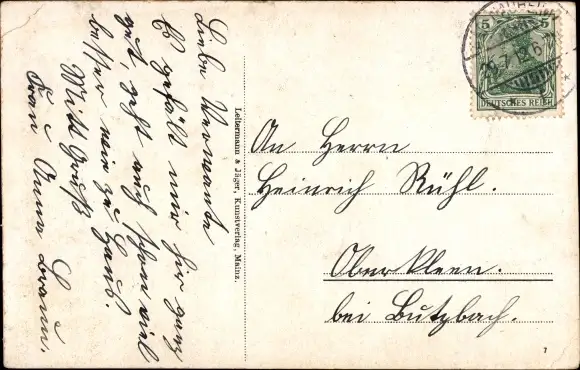 Liebe Verwante
Es gefällt mir hir ganz
gut, geht auch schon viel
besser wie zu Haus.
Mit Gruß
Frau Anna Braun.
Leibermann & Jäger, Kunstverlag, Mainz.
5 5
DEUTSCHES REICH
An Herrn
Heinrich Rühl.
Oberkleen.
bei Butzbach.
7